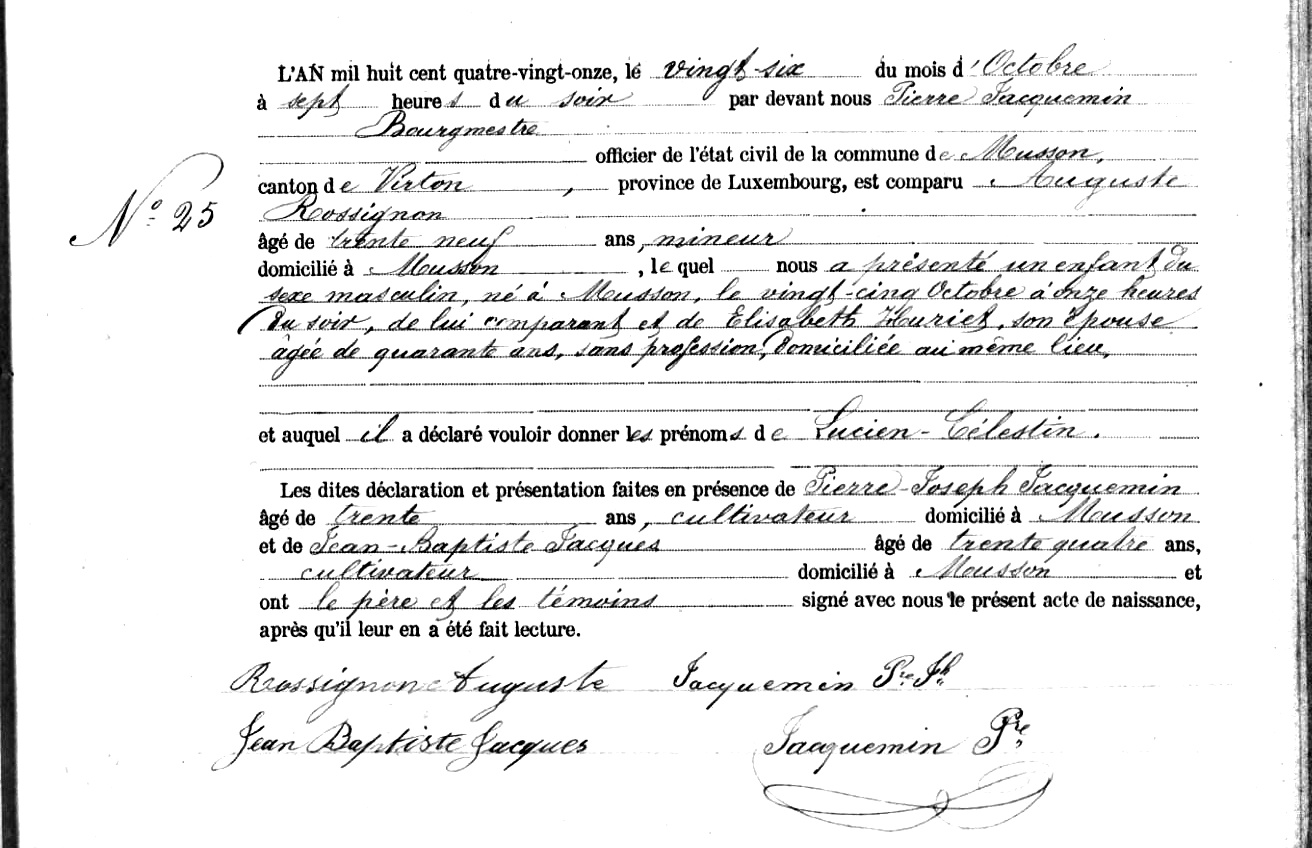 L'AN mil huit cent quatre-vingt-onze, le vingt-six du mois d'Octobre
à sept heures du soir par devant nous Pierre Jacquemin
Bourgmestre
officier de l'état civil de la commune de Musson,
canton de Virton, province de Luxembourg, est comparu Auguste
N° 25
Rossignon
âgé de trente neuf ans, mineur
domicilié à Musson, lequel nous a présenté un enfant du
sexe masculin, né à Musson, le vingt-cinq Octobre à onze heures
du soir, de lui comparant et de Elisabeth Huriet, son épouse
âgée de quarante ans, sans profession, domiciliée au même lieu,
et auquel il a déclaré vouloir donner les prénoms de Lucien-Célestin.
Les dites déclaration et présentation faites en présence de Pierre-Joseph Jacquemin
âgé de trente ans, cultivateur domicilié à Musson
et de Jean-Baptiste Jacques âgé de trente quatre ans,
cultivateur domicilié à Musson et
ont le père et les témoins signé avec nous le présent acte de naissance,
après qu'il leur en a été fait lecture.
Rossignon Auguste Jacquemin Pre Jh
Jean Baptiste Jacques Jacquemin Pre